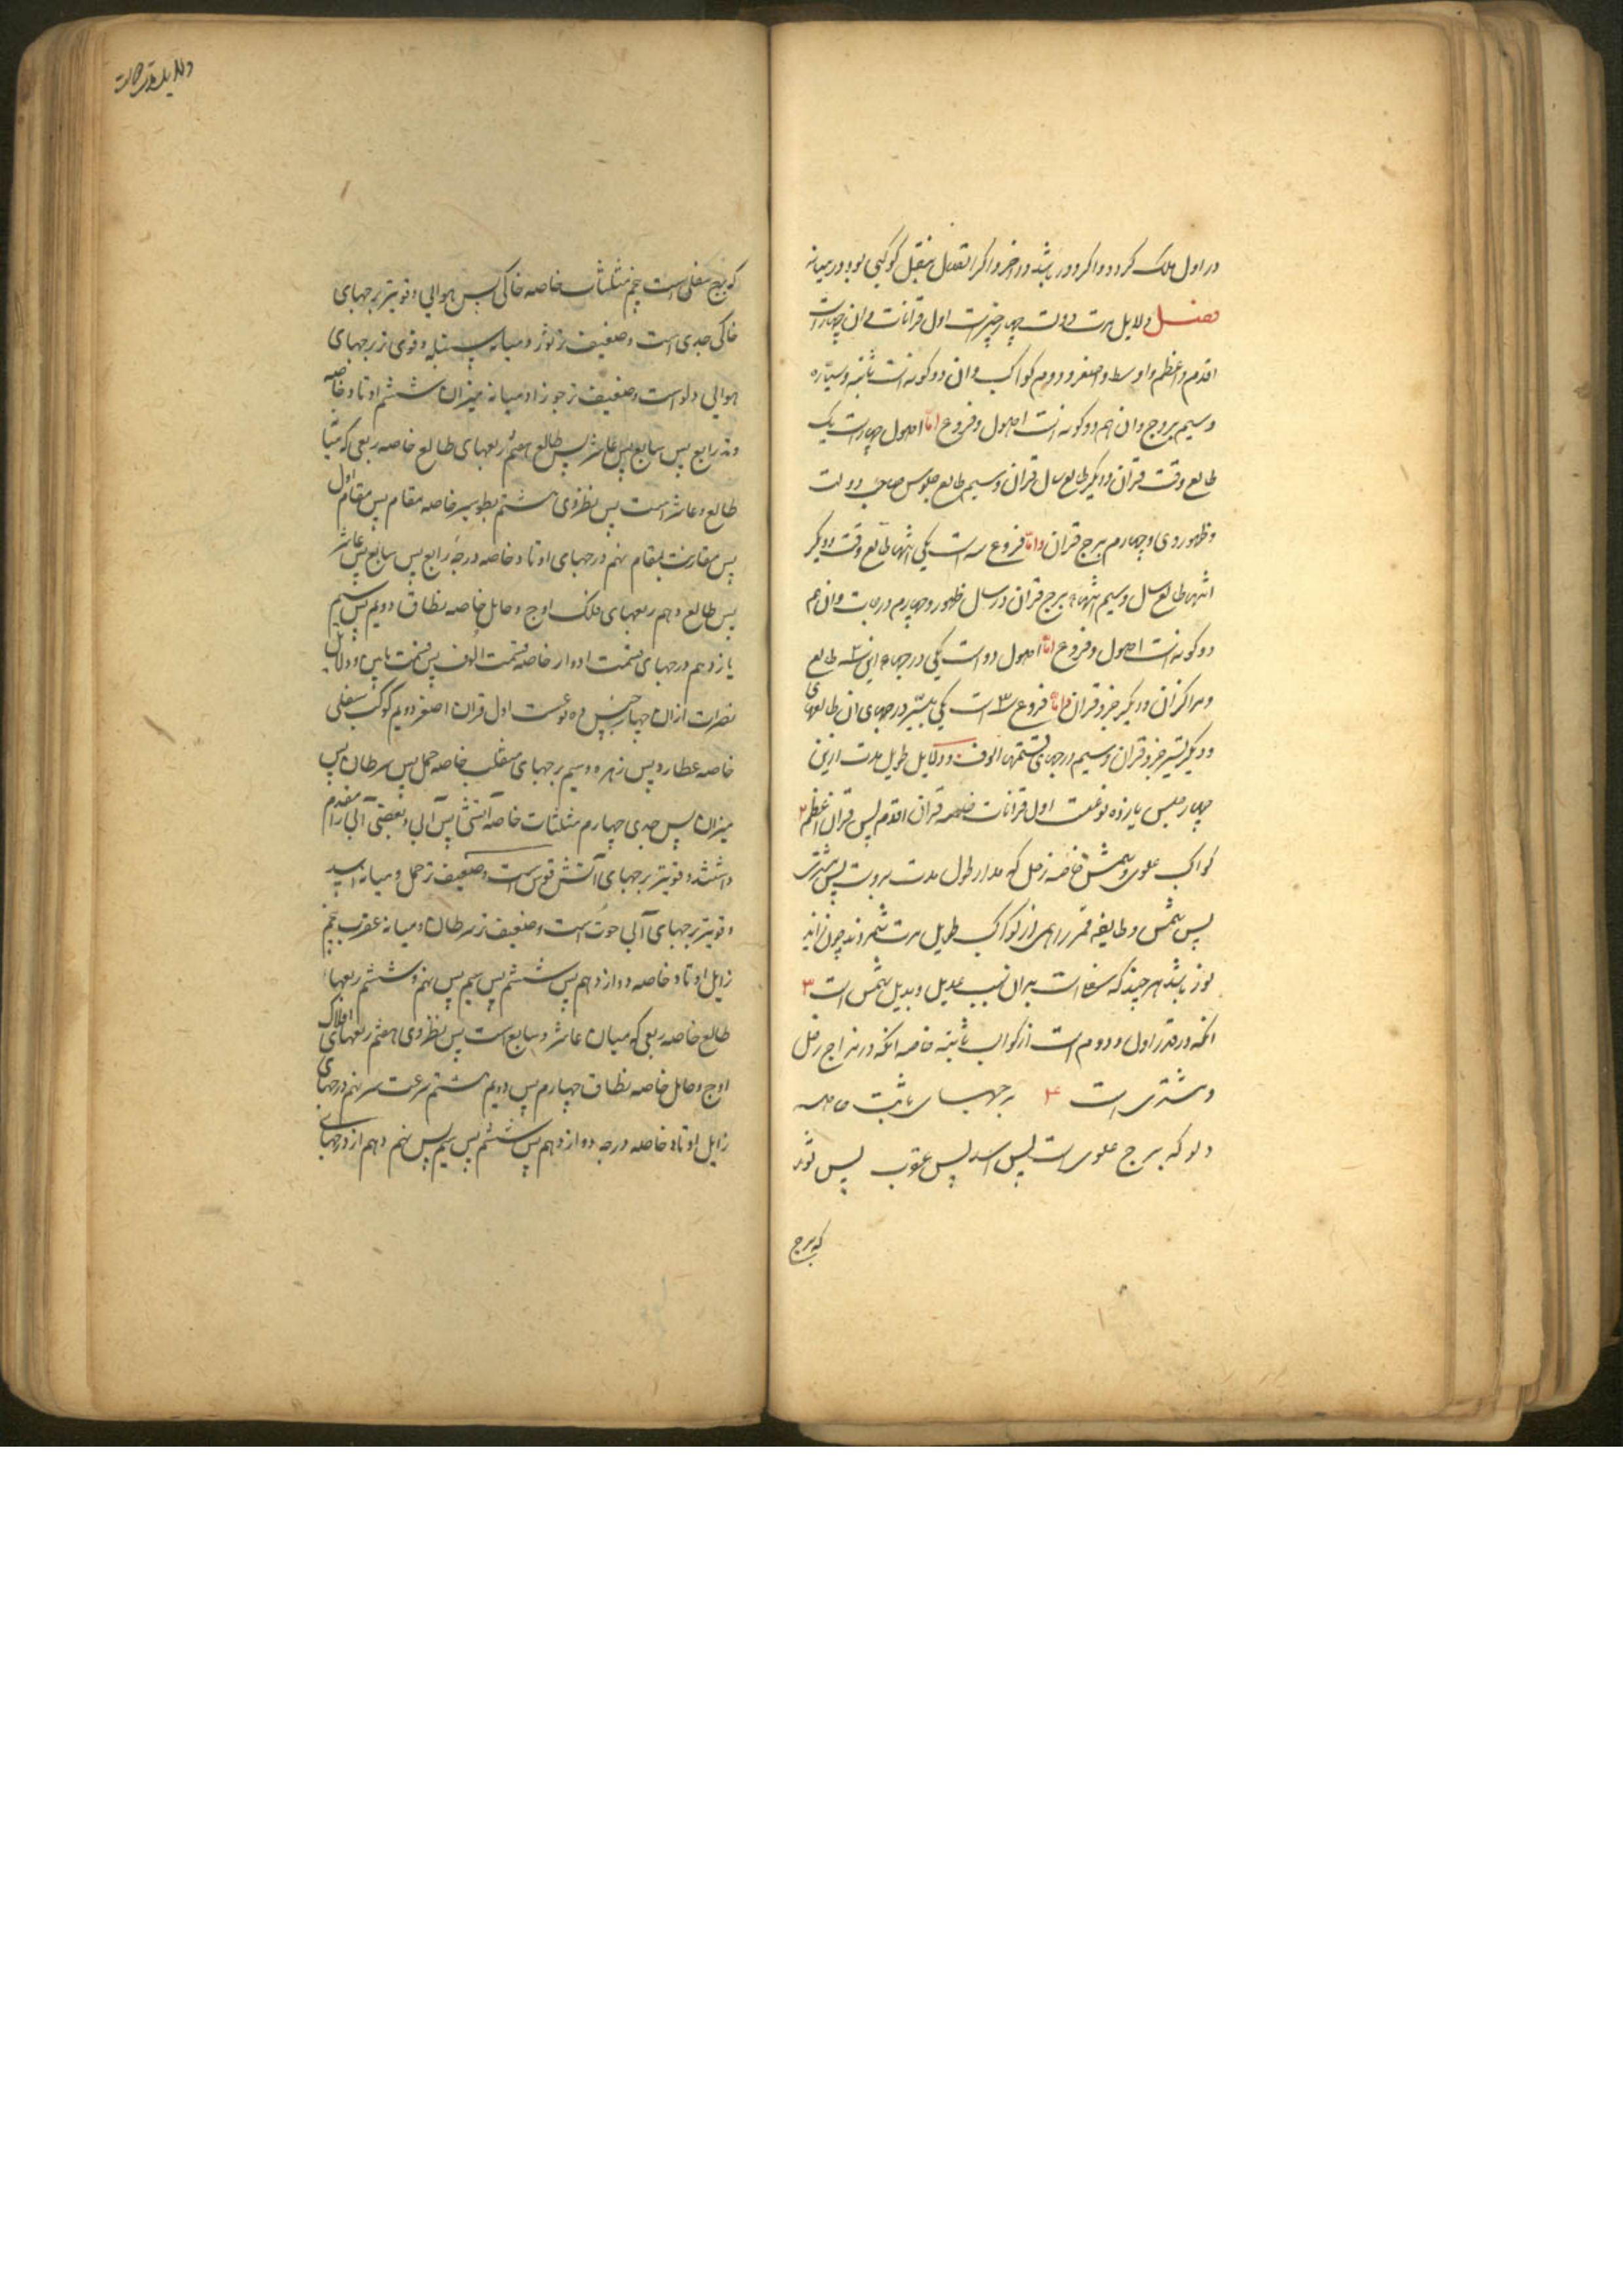 در اول ملک کردد واکر دور باشد در اخر واکر اتصال بنقل کوکبی بود در میانه
فصل دلایل مدت دولت چهار چیزست اول قرانات و ان چهارست
اقدم و اعظم و اوسط و اصغر و دویم کواکب و ان دو کونه است ثابته و سیاره
و سیم بروج و ان هم دو کونه است اصول و فروع اما اصول چهارست یک
طالع وقت قران و دیکر طالع سال قران و سیم طالع جلوس صاحب دولت
و ظهور وی و چهارم برج قران و اما فروع سه است یکی انتهاء طالع وقت و دیکر
انتهاء طالع سال و سیم انتهاء برج قران در سال ظهور و چهارم درجات و ان هم
دو کونه است اصول و فروع اما اصول دو است یکی درجهاء این طالع
و مراکز ان و دیکر جزو قران و اما فروع ۳ است یکی تسییر درجهای ان طالعهای
و دیکر تسییر جزو قران و سیم درجهای قسمتهاء الوف و دلایل طویل مدت ازین
چهار جنس یازده نوعست اول قرانات خاصه قران اقدم پس قران اعظم ۲
کواکب علوی و شمس خاصه زحل که مدار طول مدت بروست پس مشتری
پس شمس و طایفه قمر را هم از کواکب طویل مدت شمرند چون زاید
نور باشد هر چند که سفلی است بدان سبب عدیل و بدیل شمس است ۳
انکه در قدر اول و دوم است از کواکب ثابته خاصه انکه در مزاج زحل
و مشتری است ۴ برجهای ثابت خاصه
دلو که برج علوی است پس اسد پس عقرب پس ثور
که برج
دلایل نصرت
که برج سفلی است پنجم مثلثات خاصه خاکی پس هوایی و قویتر برجهای
خاکی جدی است و ضعیف تر ثور و میانه سنبله و قوی تر برجهای
هوایی دلو است و ضعیف تر جوزا و میانه میزان ششم اوتاد خاصه
وتد رابع پس سابع پس عاشر پس طالع هفتم ربعهای طالع خاصه ربعی که میان
طالع و عاشر است پس نظر وی هشتم بطو سیر خاصه مقام پس مقام اول
پس مقارنت بمقام نهم درجهای اوتاد خاصه درجه رابع پس سابع پس عاشر
پس طالع دهم ربعهای فلک اوج و حامل خاصه نطاق دویم پس سیم
یازدهم درجهای قسمت ادوار خاصه قسمت الوف پس قسمت مایین و دلایل
نصرت ازان چهار جنس ده نوعست اول قران اصغر دویم کوکب سفلی
خاصه عطارد پس زهره و سیم برجهای منقلب خاصه حمل پس سرطان پس
میزان پس جدی چهارم مثلثات خاصه آتشی پس آبی و بعضی آبی را مقدم
داشتند و قویتر برجهای آتش قوس است و ضعیف تر حمل و میانه اسد
و قویتر برجهای آبی حوت است و ضعیف تر سرطان و میانه عقرب پنجم
زایل اوتاد خاصه دوازدهم پس ششم پس سیم پس نهم و ششم ربعهاء
طالع خاصه ربعی که میان عاشر و سابع است پس نظر وی هفتم ربعهای افلاک
اوج و حامل خاصه نطاق چهارم پس دویم هشتم سرعت سیر نهم درجهای
زایل اوتاد خاصه درجه دوازدهم پس ششم پس سیم پس نهم دهم از درجهای